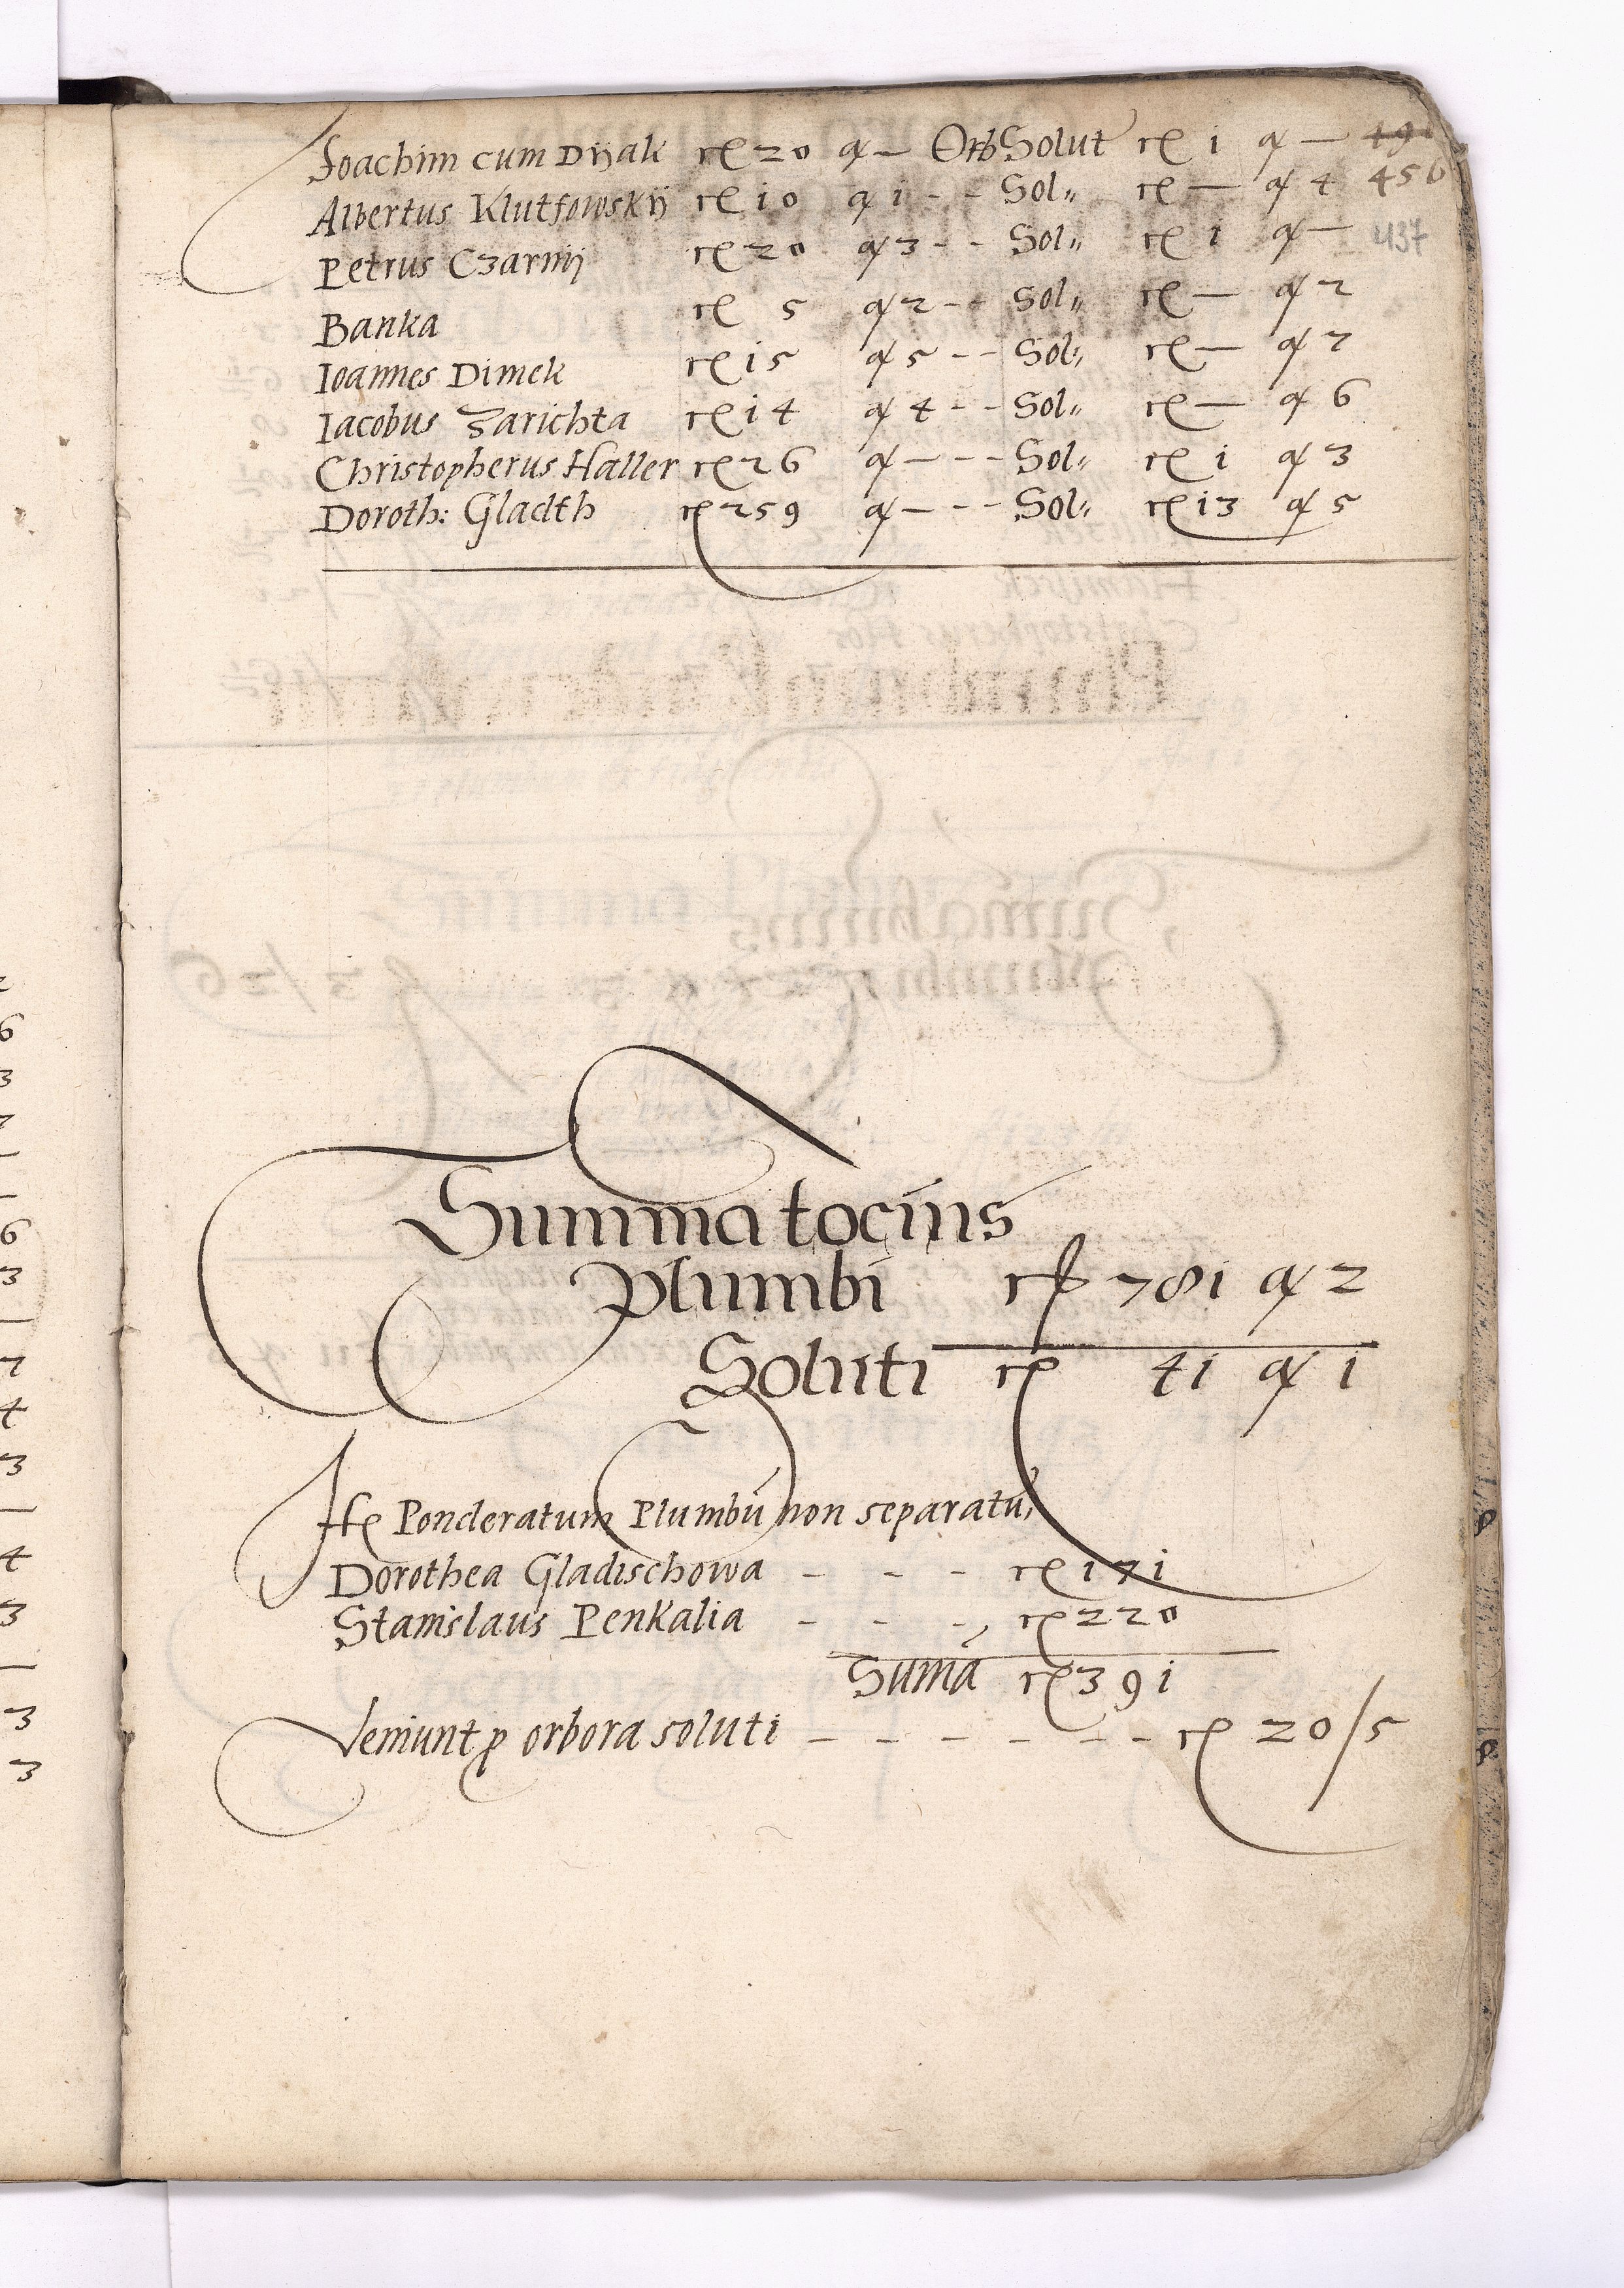 Joachim cum Dijak cꝫ 20 q — Orb Solut cꝫ 1 q —
Albertus Klutsowskij cꝫ 10 q 1 - - Sol,, cꝫ — q 4 456
Petrus Czarnij cꝫ 20 q 3 - - Sol,, cꝫ 1 q — 437
Banka cꝫ 5 q 2 - - Sol,, cꝫ — q 2
Ioannes Dimek cꝫ 15 q 5 - - Sol,, cꝫ — q 7
Iacobus Zarichta cꝫ 14 q 4 - - Sol,, cꝫ — q 6
Christopherus Haller cꝫ 26 q — - - Sol,, cꝫ 1 q 3
Doroth: Gladth cꝫ 259 q — - - Sol,, cꝫ 13 q 5
Summa tocius
Plumbi cꝫ 781 q 2
Soluti cꝫ 41 q 1
Itꝫ Ponderatum Plumbū non separatū
Dorothea Gladischowa - - - cꝫ 171
Stanislaus Penkalia - - - cꝫ 220
Sumā cꝫ 391
Veniunt ꝑ orbora soluti - - - - - - cꝫ 20/5